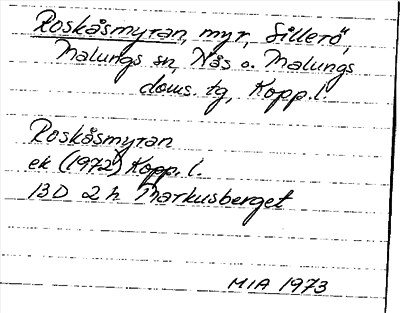 Roskåsmyran, myr, Sillerö,
Malungs sn, Nås o. Malungs
doms. tg, Kopp. l.
Roskåsmyran
ek (1972) Kopp. l.
13D 2h Markusberget
MIA 1973